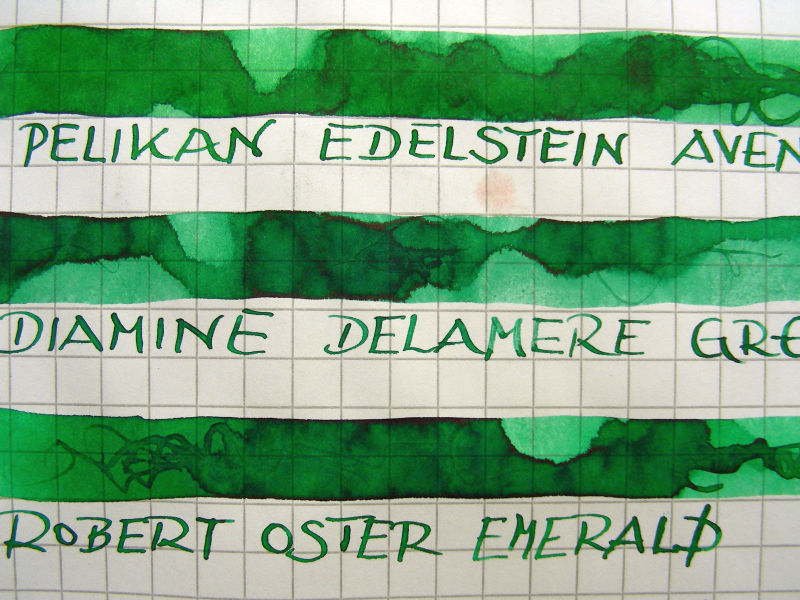 PELIKAN EDELSTEIN AVEN
DIAMINE DELAMERE GRE
ROBERT OSTER EMERALD